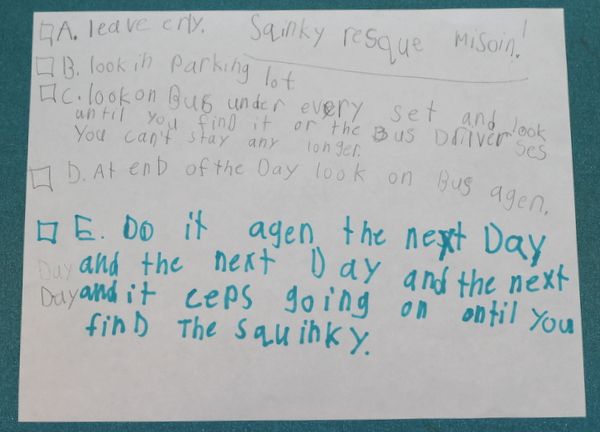 A. leave erly. Sqinky resque misoin!
B. look in parking lot
C. look on Bus under every set and look
until you find it or the Bus Driver ses
You can't stay any longer.
D. At enD of the Day look on Bus agen.
E. Do it agen the next Day
Day and the next Day and the next
Day and it ceps going on ontil you
finD The squinky.